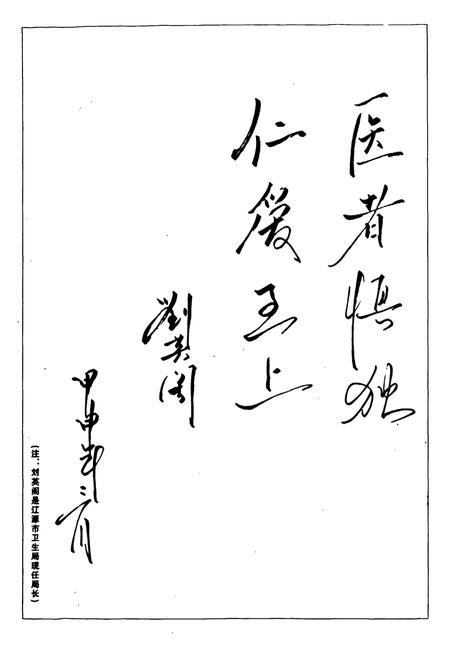 医者慎独
仁爱至上
劉英阁
甲申年三月
(注：刘英阁是辽源市卫生局现任局长)